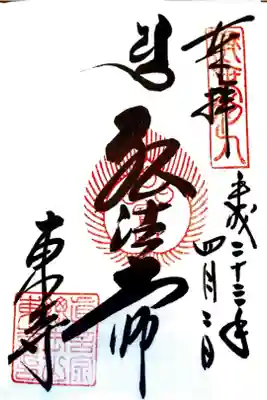 奉拝
平成二十三年
四月二日
弘法大師
東寺